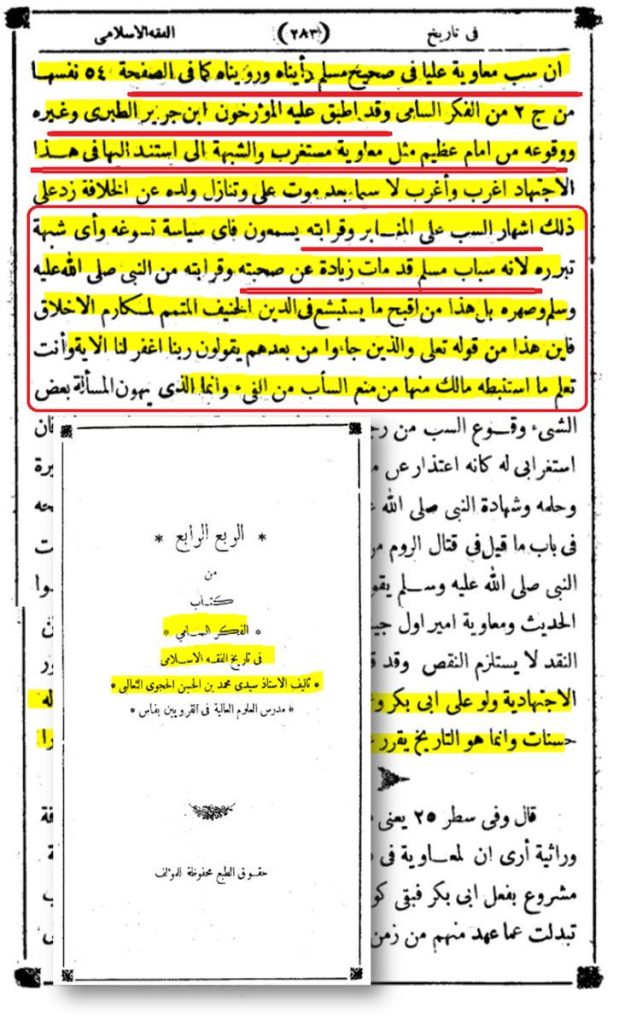 فى تاريخ (٢٨٣) الفقه الاسلامى
ان سب معاوية عليا فى صحيح مسلم رأيناه ورويناه كما فى الصفحة ٥٤ نفسها
من ج ٢ من الفكر السامى وقد اطبق عليه المؤرخون ابن جرير الطبرى وغيره
ووقوعه من امام عظيم مثل معاوية مستغرب والشبهة التى استند اليها فى هذا
الاجتهاد اغرب وأغرب لا سيما بعد موت على وتنازل ولده عن الخلافة زد على
ذلك اشهار السب على المنابر وقرابته يسمعون فاى سياسة تسوغه وأى شبهة
تبرره لانه سباب مسلم قد مات زيادة عن صحبته وقرابته من النبى صلى الله عليه
وسلم وصهره بل هذا من اقبح ما يستبشع فى الدين الحنيف المتمم لمكارم الاخلاق
فاين هذا من قوله تعلى والذين جاءوا من بعدهم يقولون ربنا اغفر لنا الاية وأنت
تعلم ما استنبطه مالك منها من منع الساب من الفىء وانما الذى يهون المسألة بعض
الشىء وقوع السب من
استغرابى له كانه اعتذار عن
وحلمه وشهادة النبى صلى الله
فى باب ما قيل فى قتال الروم
النبى صلى الله عليه وسلم
الحديث ومعاوية امير اول
النقد لا يستلزم النقص وقد
الاجتهادية ولو على ابى بكر
حسنات وانما هو التاريخ يقرر
قال وفى سطر ٢٥ يعنى
وراثية أرى ان لمعاوية فى
مشروع بفعل ابى بكر فبقى
تبدلت عما عهد منهم من زمن
* الربع الرابع *
من
كتاب
* الفكر السامى *
فى تاريخ الفقه الاسلامى
* تاليف الاستاذ سيدى محمد بن الحسن الحجوى الثعالبى *
* مدرس العلوم العالية فى القرويين بفاس *
حقوق الطبع محفوظة للمؤلف